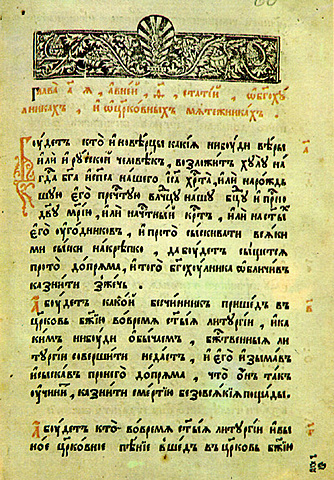 Глава а҃ , а въ ней , ѳ҃ , статей , ѡ бг҃оху
лникахъ , и ѡ цр҃ковныхъ мѧтежникахъ .
Бꙋдетъ кто иновѣрцы какїѧ нибꙋди вѣры
или и рꙋской человѣкъ , возложитъ хꙋлꙋ на
гд҃а бг҃а и сп҃са нашего іс҃а хрⷭ҇та , или нарождь
шꙋю его преⷱ҇тꙋю влⷣчцꙋ нашꙋ бцⷣꙋ и присно
дв҃ꙋ мр҃їю , или на чⷭ҇тный крⷭ҇тъ , или на ст҃ыⷯ
его ᲂугодниковъ , и про то сыскивати всѧки
ми сыски накрѣпко , да бꙋдетъ сыщетсѧ
про то допрѧма , и того бг҃охꙋлника ѡбличивъ
казнити зжечь .
А бꙋдетъ какой бесчинникъ пришедъ въ
цр҃ковь бж҃їю во времѧ ст҃ыѧ литꙋргїи , и ка
кимъ нибꙋди ѡбычаемъ , бж҃ственныѧ ли
тꙋргїи совершити не дастъ , и его изымавъ
и сыскавъ про него допрѧма , что ѡнъ такъ
ᲂучинитъ , казнити смертїю безо всѧкїѧ пощады .
А бꙋдетъ кто во времѧ ст҃ыѧ литꙋргїи и въ и
ное цр҃ковное пѣнїе вшедъ въ цр҃ковь бж҃їю